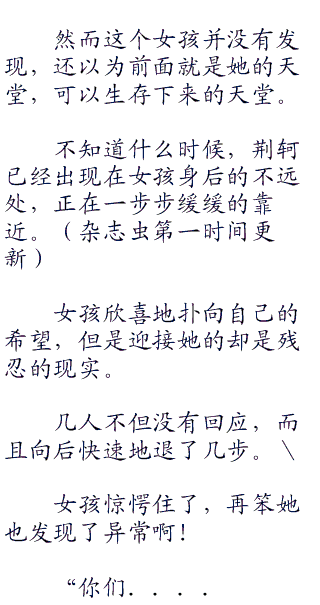 然而这个女孩并没有发
现，还以为前面就是她的天
堂，可以生存下来的天堂。
不知道什么时候，荆轲
已经出现在女孩身后的不远
处，正在一步步缓缓的靠
近。（杂志虫第一时间更
新）
女孩欣喜地扑向自己的
希望，但是迎接她的却是残
忍的现实。
几人不但没有回应，而
且向后快速地退了几步。\
女孩惊愕住了，再笨她
也发现了异常啊！
“你们．．．．